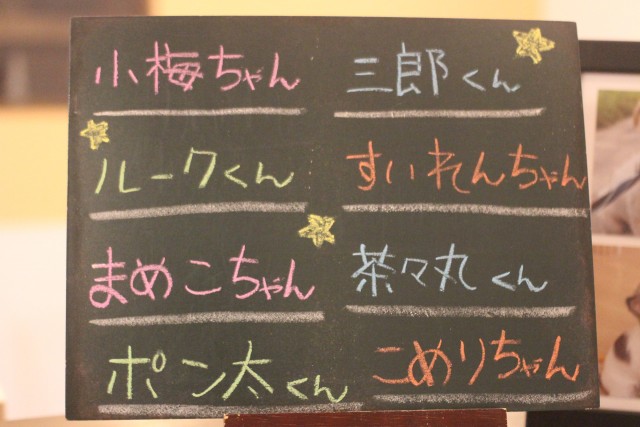 小梅ちゃん
三郎くん
ルークくん
すいれんちゃん
まめこちゃん
茶々丸くん
ポン太くん
こめりちゃん